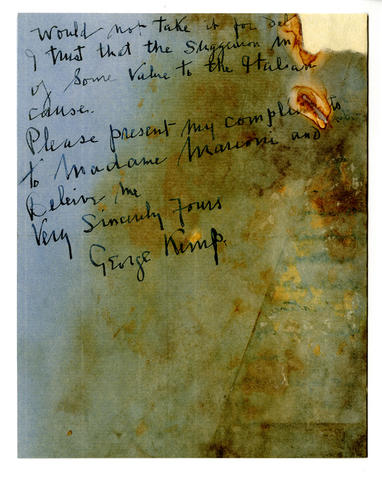 Would not take it for
I trust that the Suggestion
of Some Value to the Italian
cause.
Please present my
to Madame Marconi and
Beleive me
Very Sincerely Yours
George Kemp.